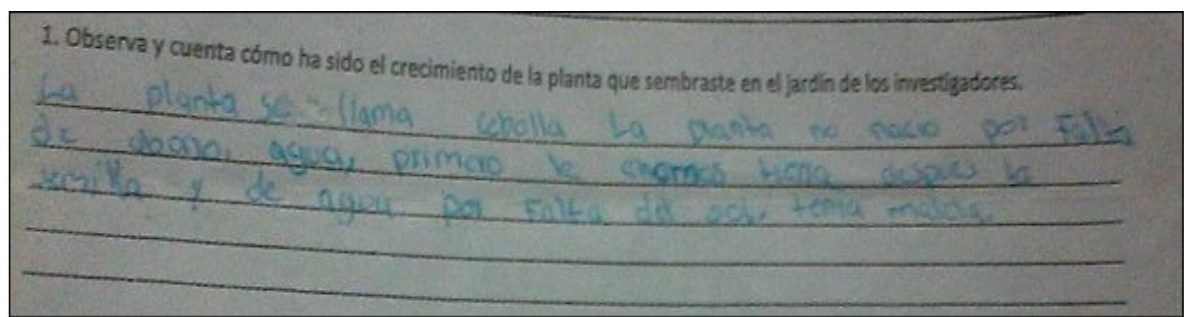 1. Observa y cuenta cómo ha sido el crecimiento de la planta que sembraste en el jardín de los investigadores.
La planta se llama cebolla La planta no nacio por Falta
de abono, agua, primero le tierra despues la
semilla y de agua por Falta del sol, tenia maleza.